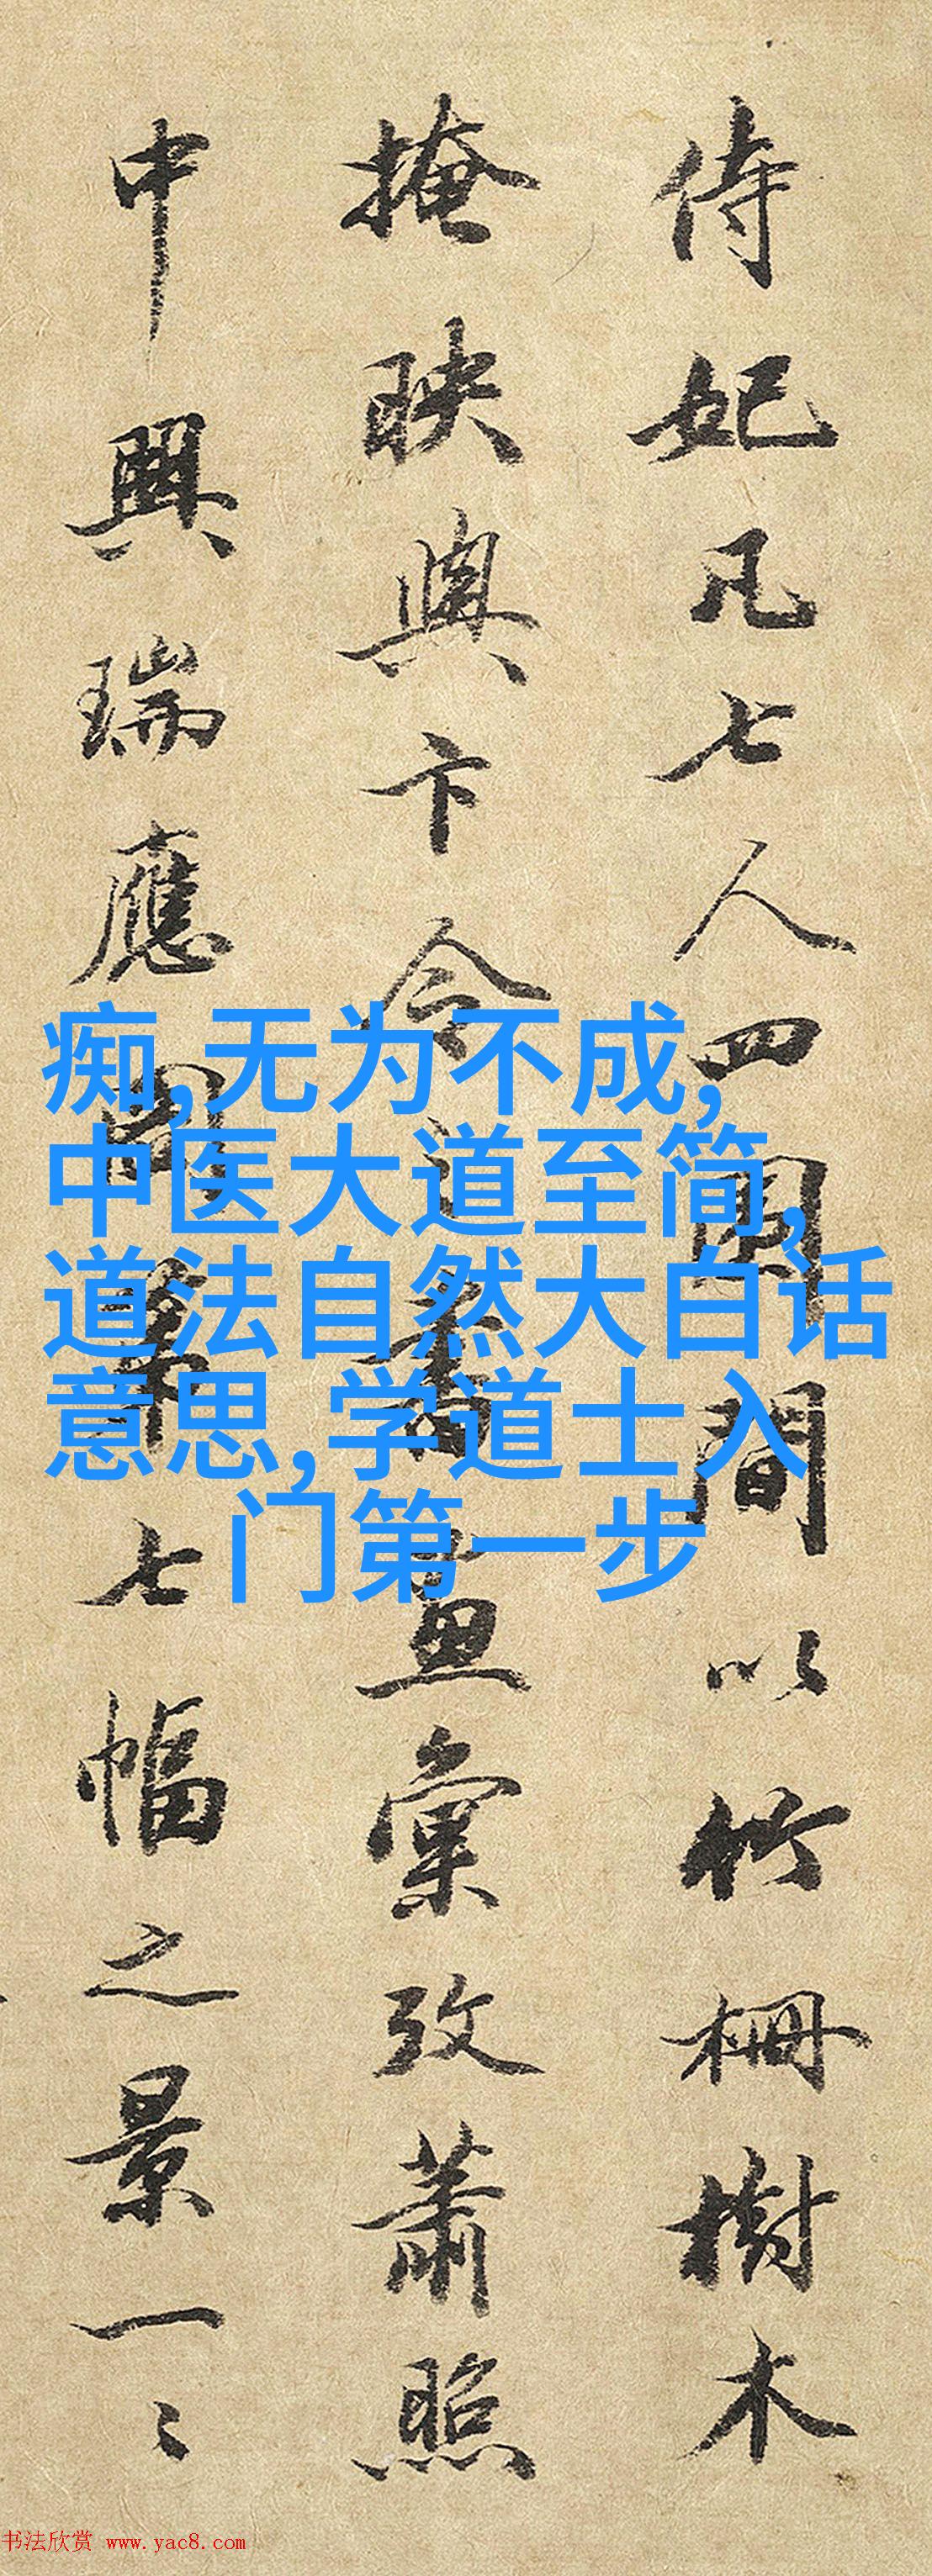 侍妃凡七人四圍間以竹柵樹木
掩映與卞令之書畫彙攷蕭照
中興瑞應圖第七幅之景一〻
痴,无为不成,
中医大道至简,
道法自然大白话
意思,学道士入
门第一步
书法欣赏 www.yac8.com